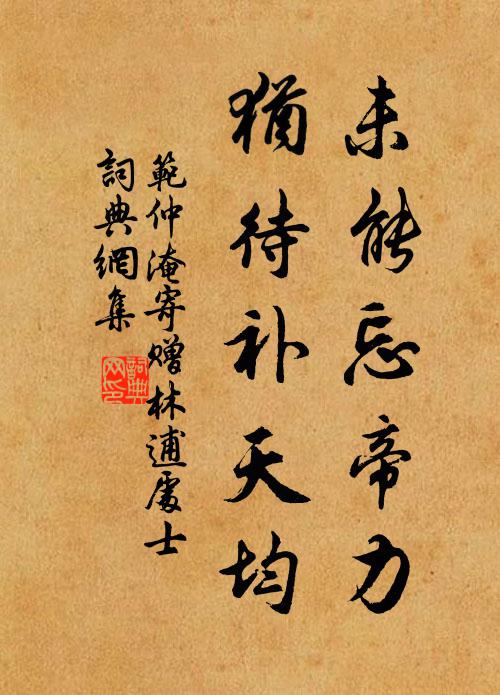 未能忘帝力
猶待补天均
範仲淹寄赠林逋處士
詞典網集
詞典網印